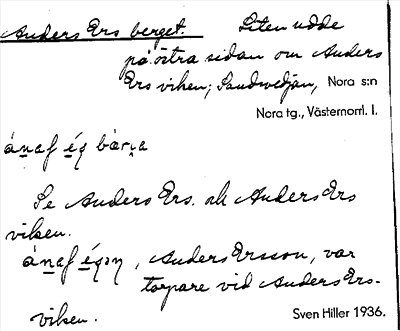 Anders Ers berget. Liten udde
på östra sidan om Anders
Ers viken; Sandvedjan, Nora s:n
Nora tg., Västernorrl. l.
Se Anders Ers. ok Anders Ers
viken.
, Anders Ersson, var
torpare vid Anders Ers-
viken.
Sven Hiller 1936.